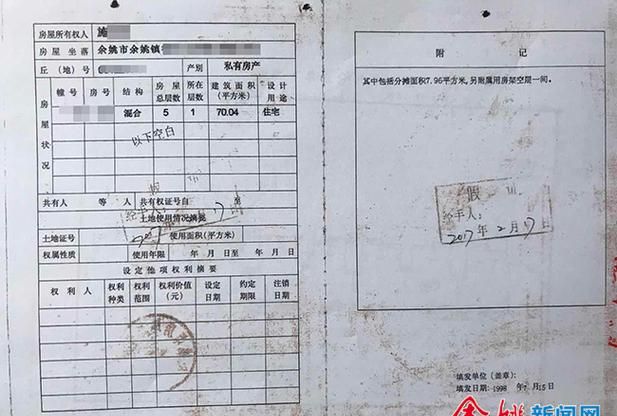 房屋所有权人 施
房屋坐落 余姚市余姚镇
丘（地）号 产别 私有房产
房屋状况
幢号 房号 结构 房屋总层数 所在层数 建筑面积（平方米） 设计用途
混合 5 1 70.04 住宅
以下空白
共有人 等 人 共有权证号自 至
土地使用情况摘要
假
经手人：
2017 17
土地证号 使用面积（平方米）
权属性质 使用年限 年 月 日至 年 月 日
设定他项权利摘要
权利人 权利种类 权利范围 权利价值（元） 设定日期 约定期限 注销日期
附 记
其中包括分摊面积7.96平方米，另附属用房架空层一间。
假
经手人：
2017年2月17日
填发单位（盖章）：
填发日期：1998年7月15日
余姚新闻网